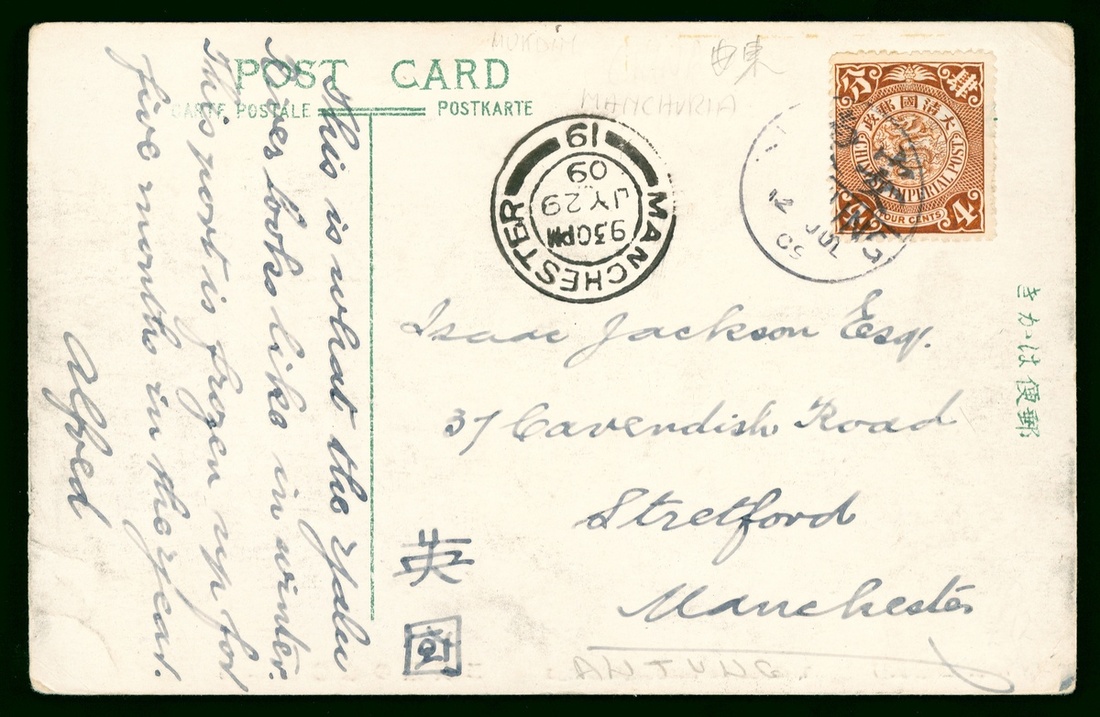 POST CARD
CARTE POSTALE
POSTKARTE
This is what the Yalu
River looks like in winter.
This port is frozen up for
five months in the year.
Alfred
MANCHURIA
MANCHESTER
9 30PM
JY 29
09
19
大清國郵政
CHINESE IMPERIAL POST
FOUR CENTS
4
Isaac Jackson Esq.
37 Cavendish Road
Stretford
Manchester
英
国
きかは便郵
ANTUNG